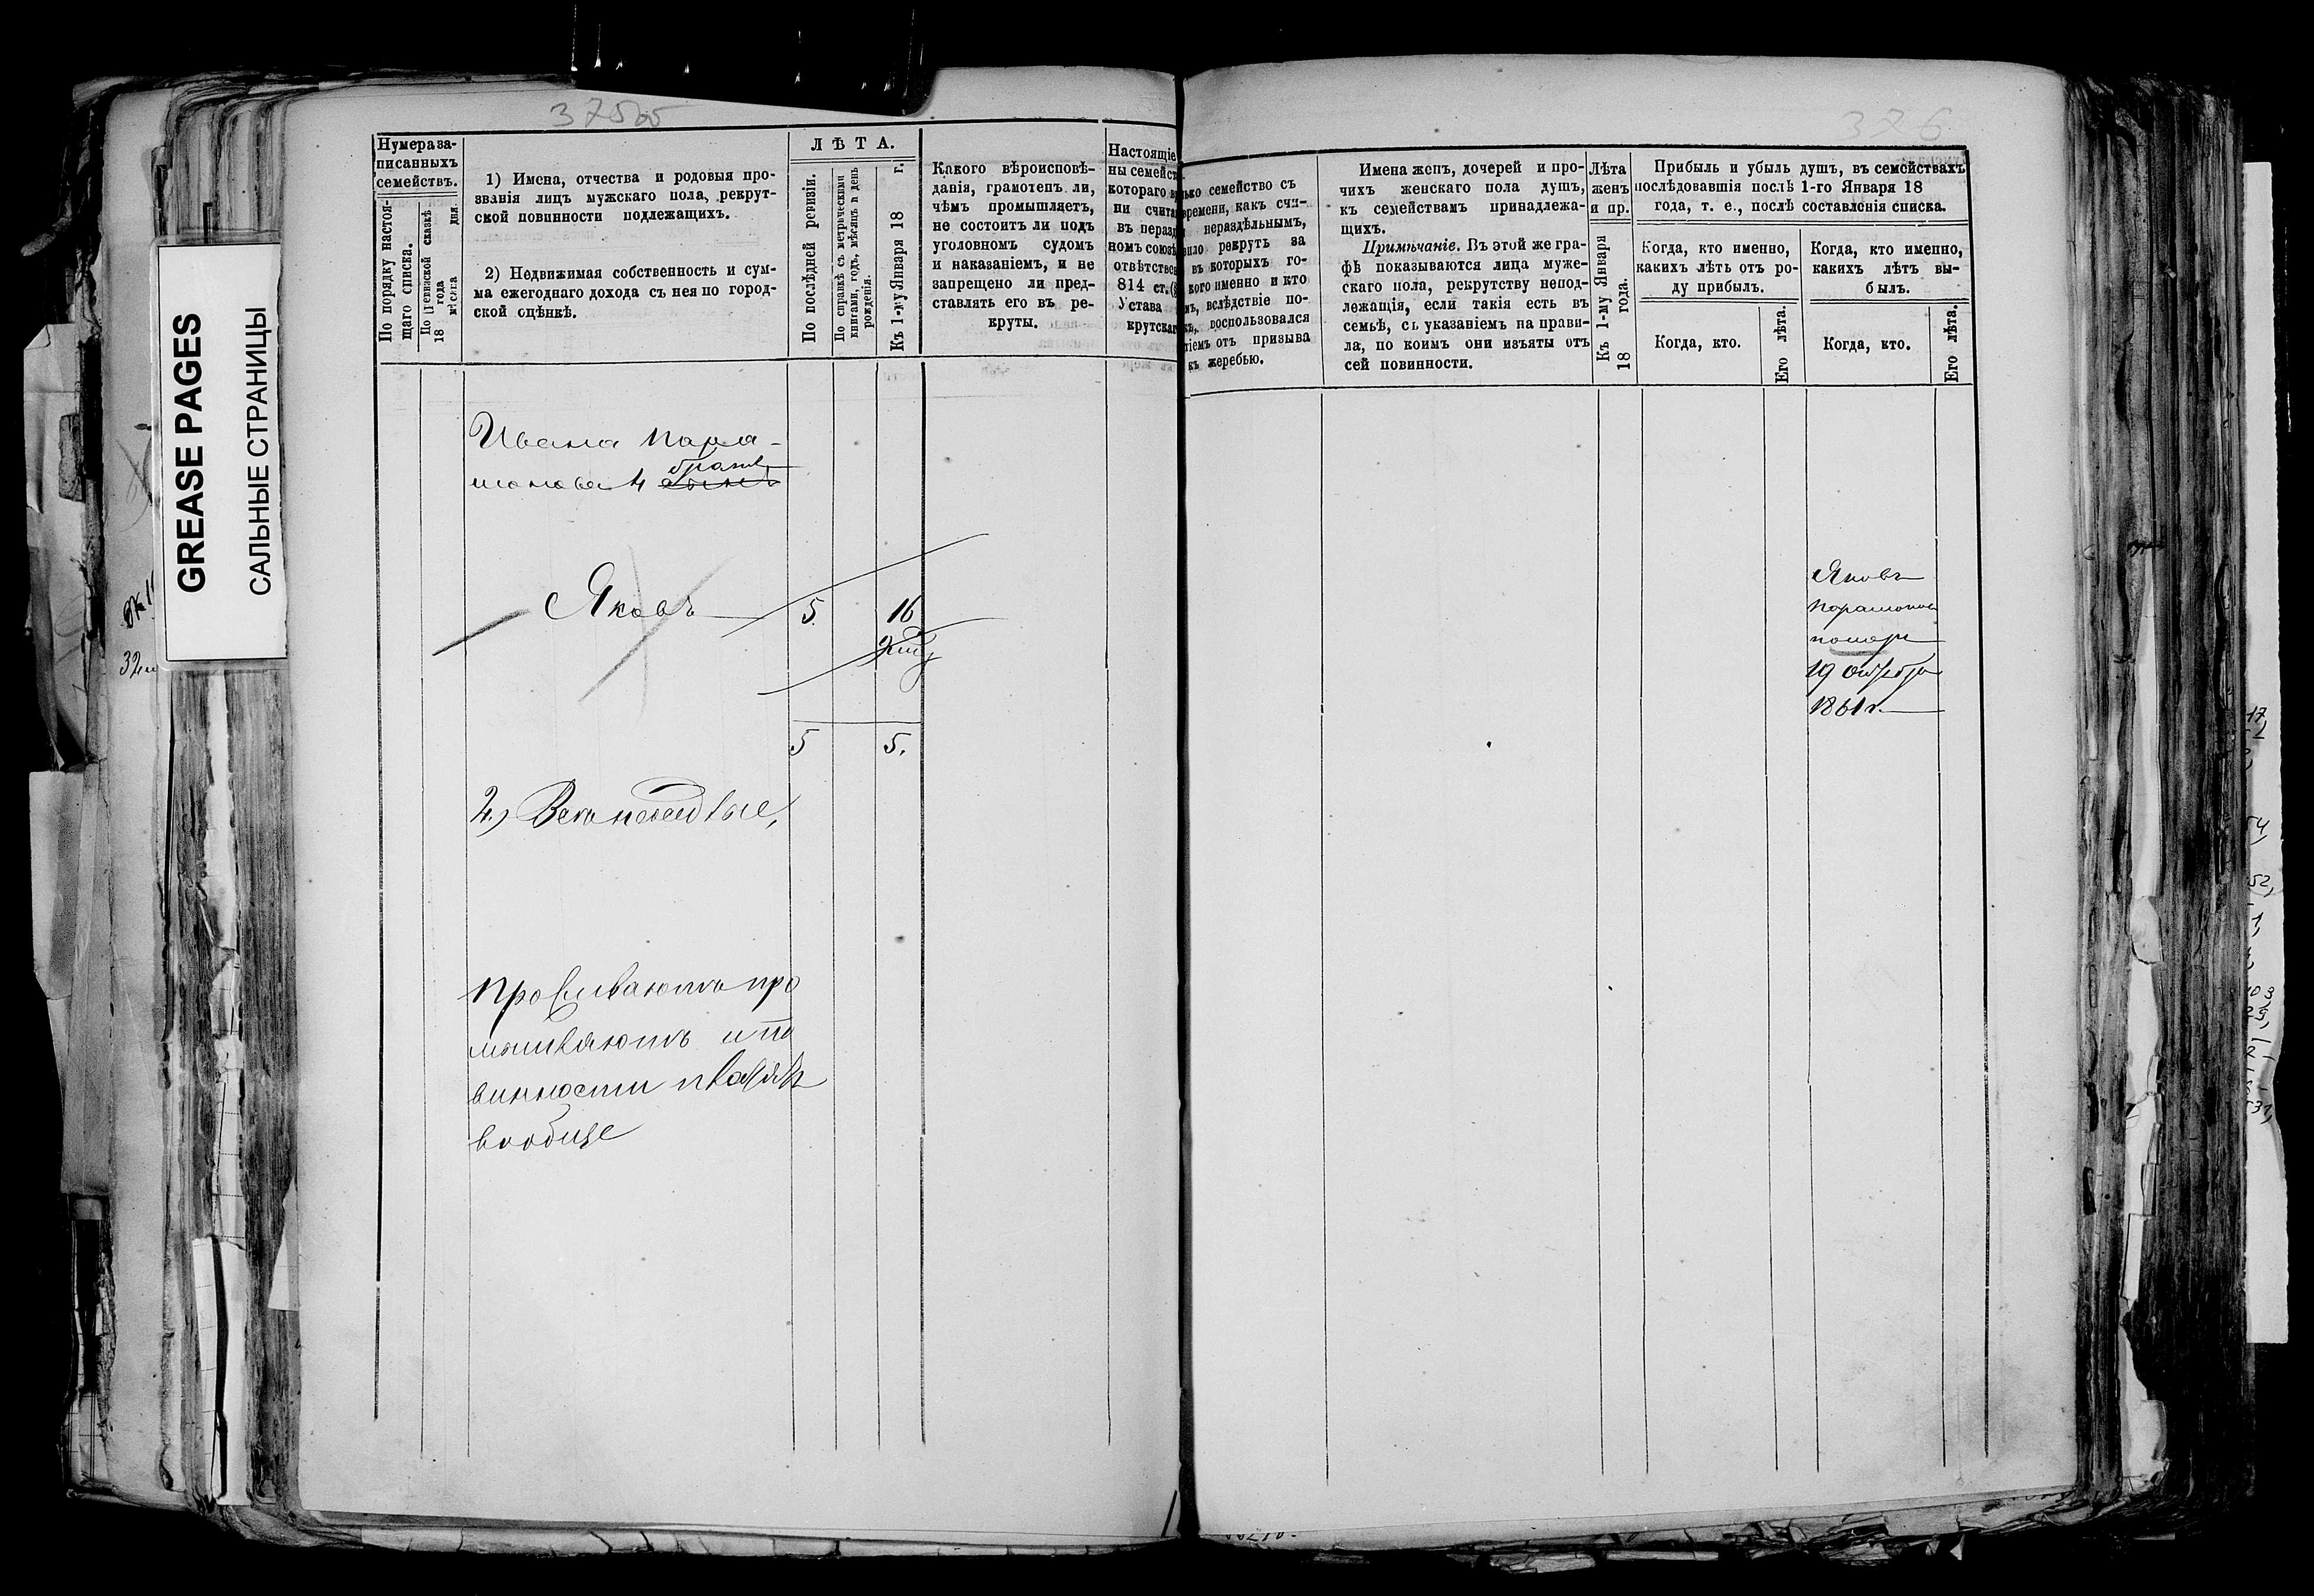 375об
376
GREASE PAGES
САЛЬНЫЕ СТРАНИЦЫ
Нумера за-
писанныхъ
семействъ.
По порядку настоя-
щаго списка.
По ревизской сказкѣ
18 года
мѣсяца дня
1) Имена, отчества и родовыя про-
званія лицъ мужскаго пола, рекрут-
ской повинности подлежащихъ.
2) Недвижимая собственность и сум-
ма ежегоднаго дохода съ нея по город-
ской оцѣнкѣ.
ЛѢТА.
По послѣдней ревизіи.
По справкѣ съ метрическими
книгами, годъ, мѣсяцъ и день
рожденія.
Къ 1-му Января 18 г.
Какого вѣроисповѣ-
данія, грамотенъ ли,
чѣмъ промышляетъ,
не состоитъ ли подъ
уголовномъ судомъ
и наказаніемъ, и не
запрещено ли пред-
ставлять его въ ре-
круты.
Настоящіе
ны семейст
котораго в
ни счита
въ перазд
номъ союзѣ
отвѣтствен
814 ст.
Устава
крутскаг
ько семейство съ
времени, какъ счи-
нераздѣльнымъ,
вило рекрутъ за
въ которыхъ го-
кого именно и кто
мъ, вслѣдствіе по-
къ, воспользовался
тіемъ отъ призыва
къ жеребью.
Имена женъ, дочерей и про-
чихъ женскаго пола душъ,
къ семействамъ принадлежа-
щихъ.
Примѣчаніе. Въ этой же гра-
фѣ показываются лица муже-
скаго пола, рекрутству непод-
лежащія, если такія есть въ
семьѣ, съ указаніемъ на прави-
ла, по коимъ они изъяты отъ
сей повинности.
Лѣта
женъ
и пр.
Къ 1-му Января
18 года.
Прибыль и убыль душъ, въ семействахъ
послѣдовавшія послѣ 1-го Января 18
года, т. е., послѣ составленія списка.
Когда, кто именно,
какихъ лѣтъ отъ ро-
ду прибылъ.
Когда, кто именно,
какихъ лѣтъ вы-
былъ.
Когда, кто.
Его лѣта.
Когда, кто.
Его лѣта.
Ивана Пара-
монова 4 братъ
сынъ
Яковъ 5. 16
5 5.
2)
Проживаютъ про
мышляютъ и по
винности
вообще
Яковъ
Парамоновъ
померъ
19 Октября
1861 г.